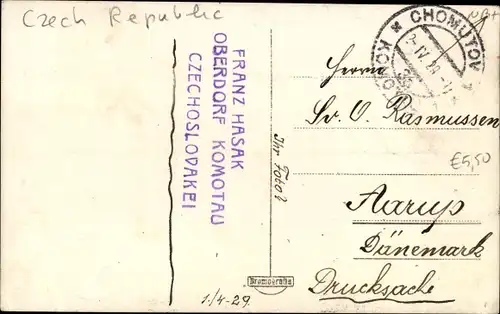 Czech Republic
FRANZ HASAK
OBERDORF KOMOTAU
CZECHOSLOVAKEI
Ihr Foto!
1/4-29.
Bromografia
CHOMUTOV
Herrn
Sv. O. Rasmussen
€5,50
Aarup
Dänemark
Drucksache